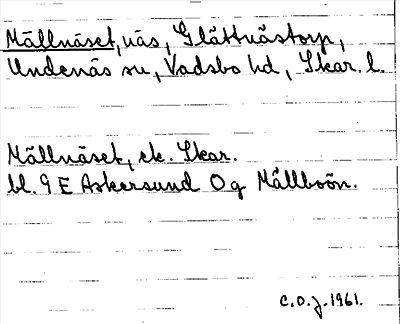 Mållnäset, näs, Glättnästorp,
Undenäs sn, Vadsbo hd, Skar. l.
Mållnäset, ek. Skar.
bl. 9 E Askersund Og Mållboön.
C.O.J. 1961.